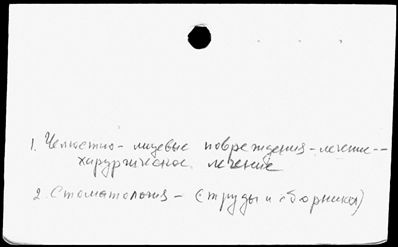 1. Челюстно-лицевые повреждения - лечение --
хирургическое лечение
2. Стоматология - (труды и сборники)